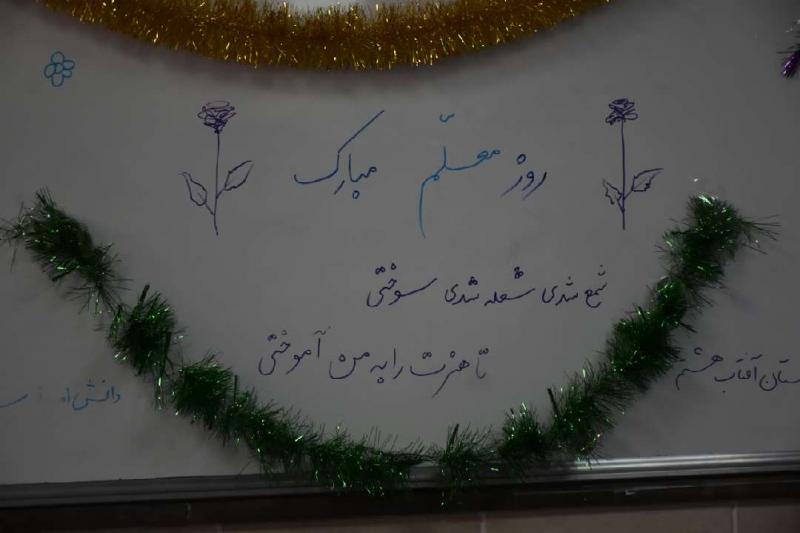 روز معلّم مبارک
شمع شدی شعله شدی سوختی
تا هنرت را به من آموختی
آفتاب هشتم